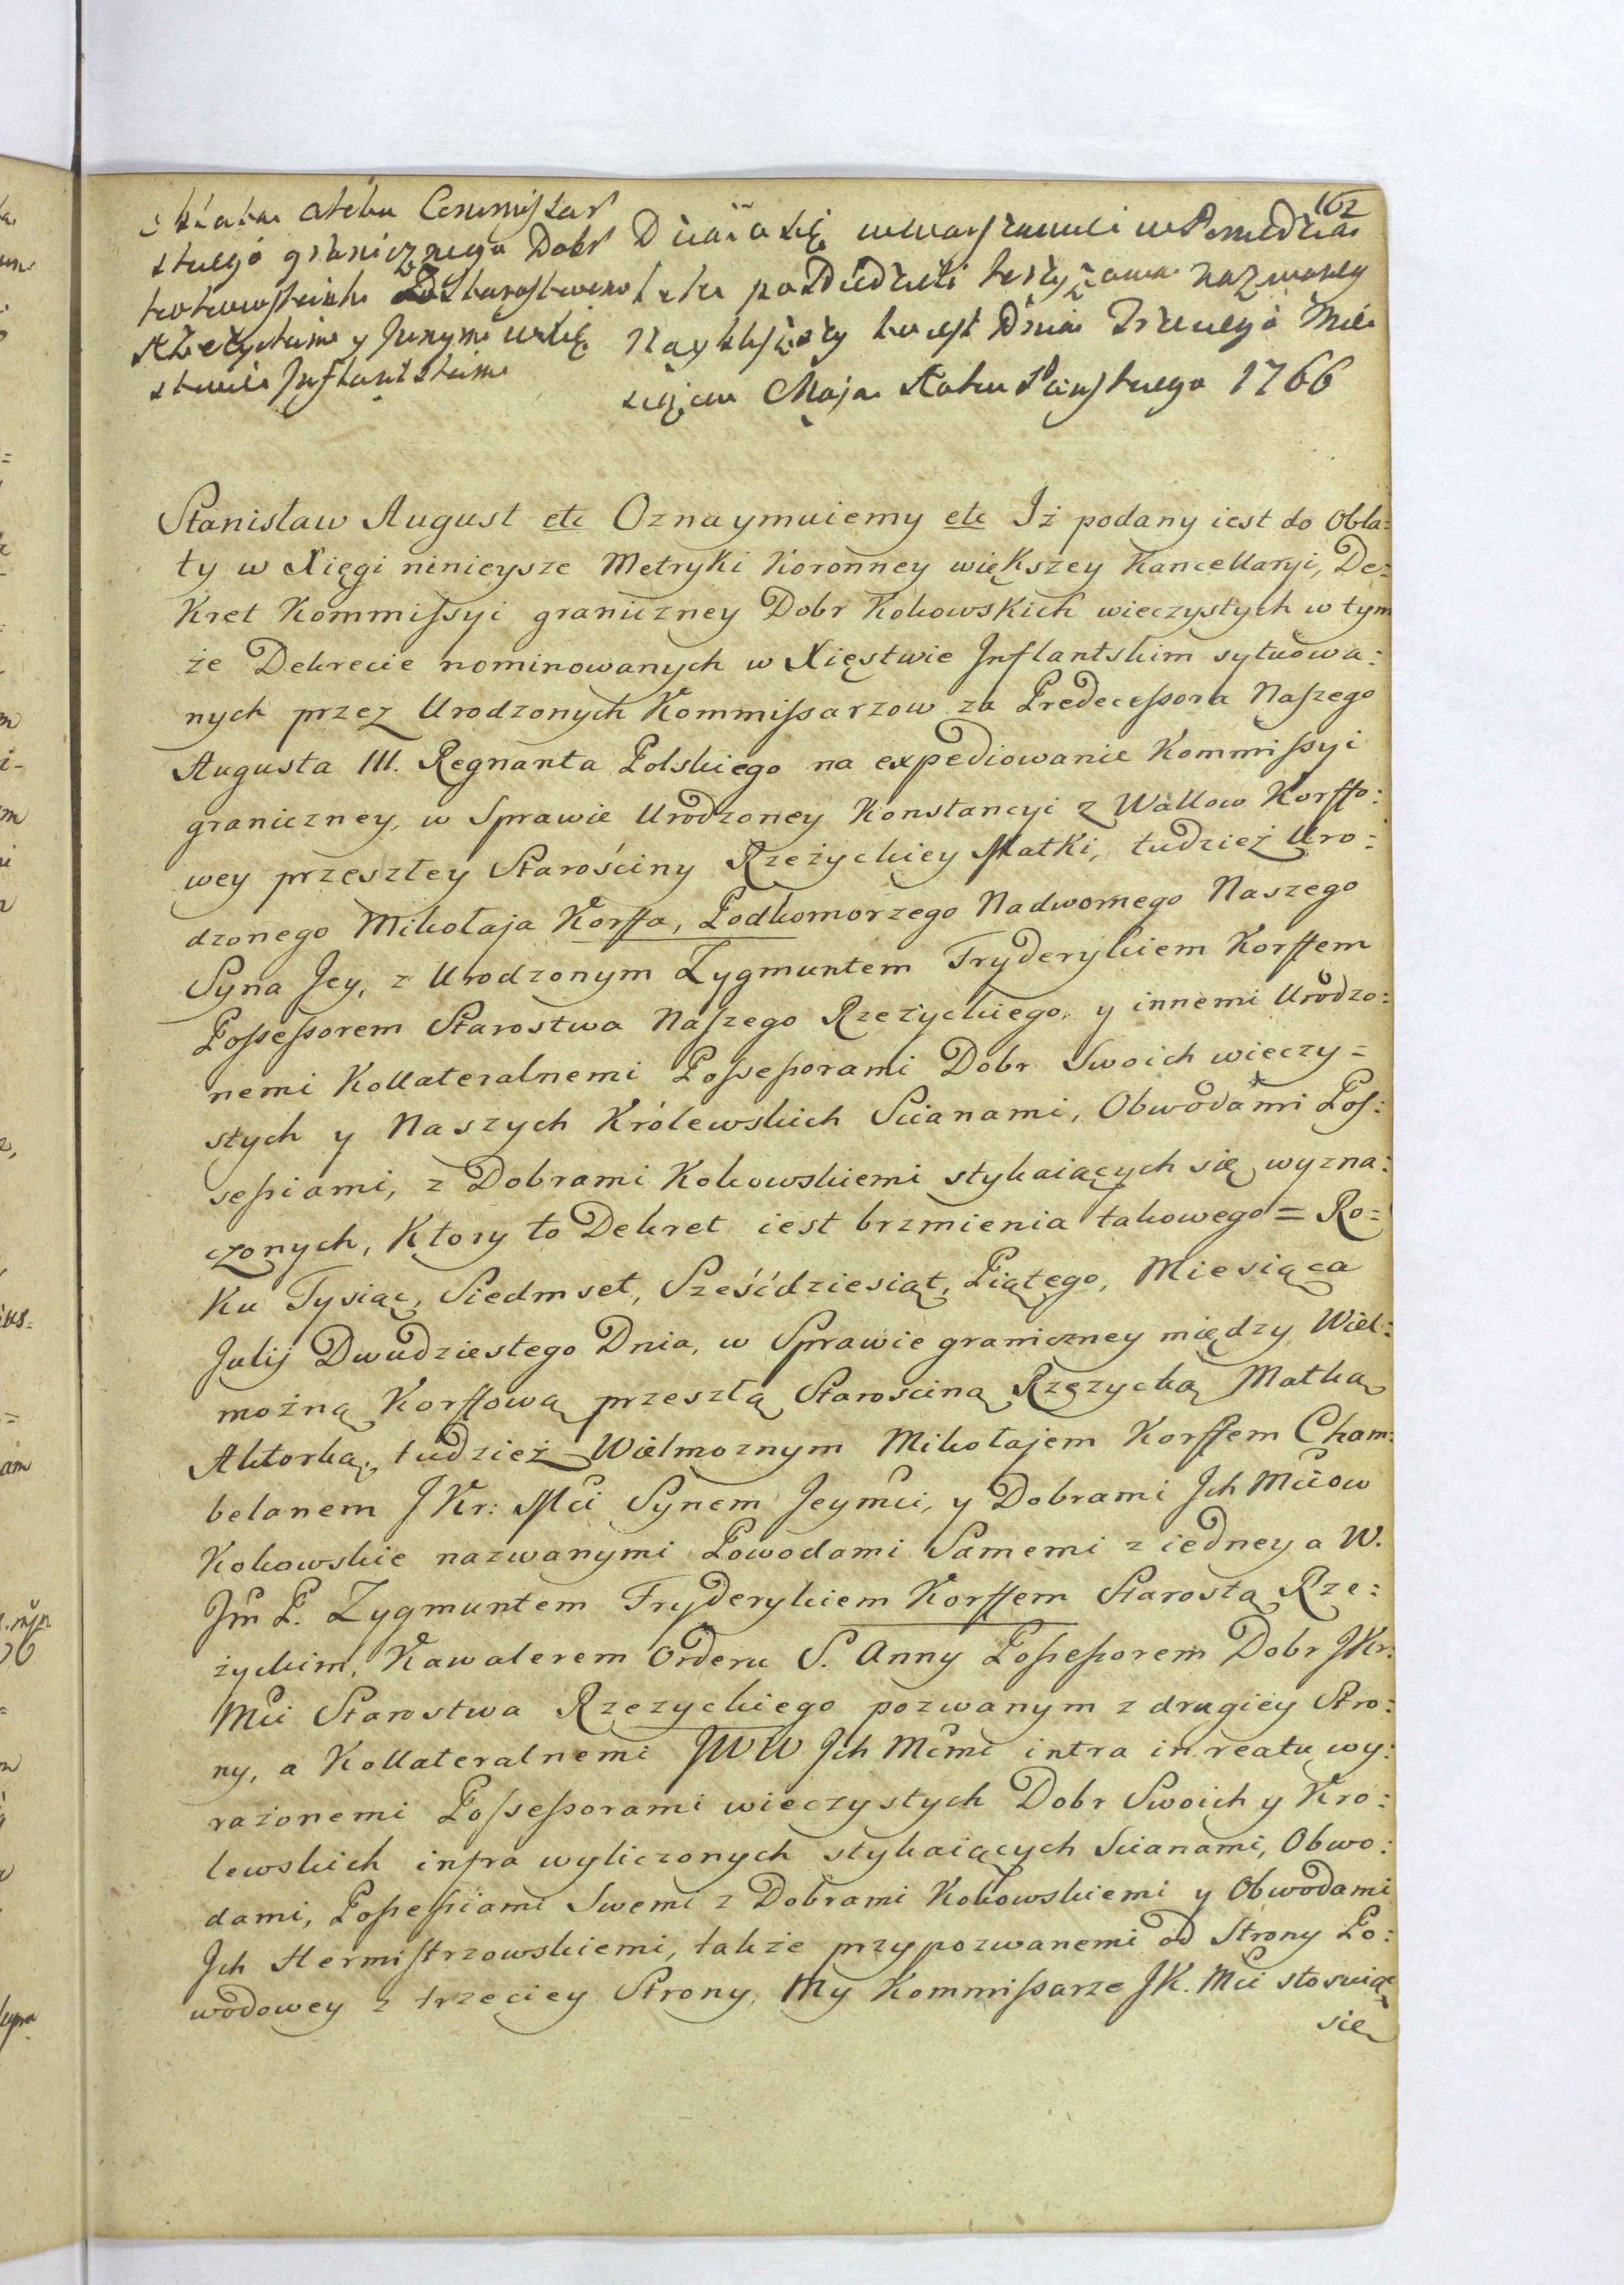 162
Oblata aktu Commissar
skiego granicznego Dobr
Kokowskich z Starostwem
Rzeżyckim y Jnnymi w Xię
stwie Inflantskim
Działo się w Warszawie w Poniedziałek
po Niedzieli Krzyżowa nazwaney
Naybliższy to iest Dnia Mie
siąca Maja Roku Pańskiego 1766
Stanisław August etc Oznaymuiemy etc Jż podany iest do Obla:
ty w Xięgi ninieysze Metryki Koronney większey Kancellaryi, De:
kret Kommissyi graniczney Dobr Kokowskich wieczystych w tym
że Dekrecie nominowanych w Xięstwie Jnflantskim sytuowa:
nych przez Urodzonych Kommissarzow za Predecessora Naszego
Augusta III. Regnanta Polskiego na expediowanie Kommissyi
graniczney, w Sprawie Urodzoney Konstancyi z Wallow Korffo:
wey przeszłey Starościny Rzeżyckiey Matki, tudzież Uro:
dzonego Mikołaja Korffa, Podkomorzego Nadwornego Naszego
Syna Jey, z Urodzonym Zygmuntem Fryderykiem Korffem
Possessorem Starostwa Naszego Rzeżyckiego, y innemi Urodzo:
nemi Kollateralnemi Possessorami Dobr Swoich wieczy=
stych y Naszych Królewskich Scianami, Obwodami Pos:
sessiami, z Dobrami Kokowskiemi stykaiących się wyzna:
czonych, Ktory to Dekret iest brzmienia takowego = Ro=
ku Tysiąc, Siedmset, Sześćdziesiąt, Piątego, Miesiąca
Julij Dwudziestego Dnia, w Sprawie graniczney między Wiel:
możną Korffową przeszłą Starosciną Rzezycką Matką
Aktorką, tudzież Wielmoznym Mikołajem Korffem Cham:
belanem J Kr: Mci Synem Jeymci, y Dobrami Jch Mciow
Kokowskie nazwanymi Powodami Samemi z iedney a W.
Jm P. Zygmuntem Fryderykiem Korffem Starostą Rze:
życkim, Kawalerem Orderu S. Anny Possessorem Dobr JKr:
Mci Starostwa Rzezyckiego pozwanym z drugiey Stro:
ny, a Kollateralnemi JWW Jch Mcmi intra in reatu wy:
rażonemi Possessorami wieczystych Dobr Swoich y Kro:
lewskich infra wyliczonych stykaiących Scianami, Obwo:
dami, Possessiami Swemi z Dobrami Kokowskiemi y Obwodami
Jch Hermistrzowskiemi, także przypozwanemi od Strony Po:
wodowey z trzeciey Strony. My Kommissarze JK. Mci stosuiąc
się